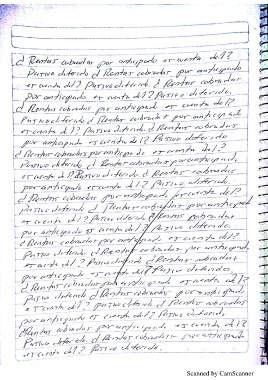 ¿ Rentas cobradas por anticipado es cuenta del?
Pasivo diferido ¿ Rentas cobradas por anticipado
es cuenta del? Pasivo diferido. ¿ Rentas cobradas
por anticipado es cuenta del? Pasivo diferido.
¿ Rentas cobradas por anticipado es cuenta del?
Pasivo diferido. ¿ Rentas cobradas por anticipado
es cuenta del? Pasivo diferido. ¿ Rentas cobradas
por anticipado es cuenta del? Pasivo diferido.
¿ Rentas cobradas por anticipado es cuenta del?
Pasivo diferido ¿ Rentas cobradas por anticipado
es cuenta del? Pasivo diferido. ¿ Rentas cobradas
por anticipado es cuenta del? Pasivo diferido.
¿ Rentas cobradas por anticipado es cuenta del?
Pasivo diferido ¿ Rentas cobradas por anticipado
es cuenta del? Pasivo diferido ¿ Rentas cobradas
por anticipado es cuenta del? Pasivo diferido.
¿ Rentas cobradas por anticipado es cuenta del?
Pasivo diferido ¿ Rentas cobradas por anticipado
es cuenta del? Pasivo diferido ¿ Rentas cobradas
por anticipado es cuenta del? Pasivo diferido
¿ Rentas cobradas por anticipado es cuenta del?
Pasivo diferido ¿ Rentas cobradas por anticipado
es cuenta del? pasivo diferido ¿ Rentas cobradas
por anticipado es cuenta del? Pasivo diferido,
¿Rentas cobradas por anticipado es cuenta del?
Pasivo diferido, ¿ Rentas cobradas por anticipado
es cuenta del? Pasivo diferido.
Scanned by CamScanner